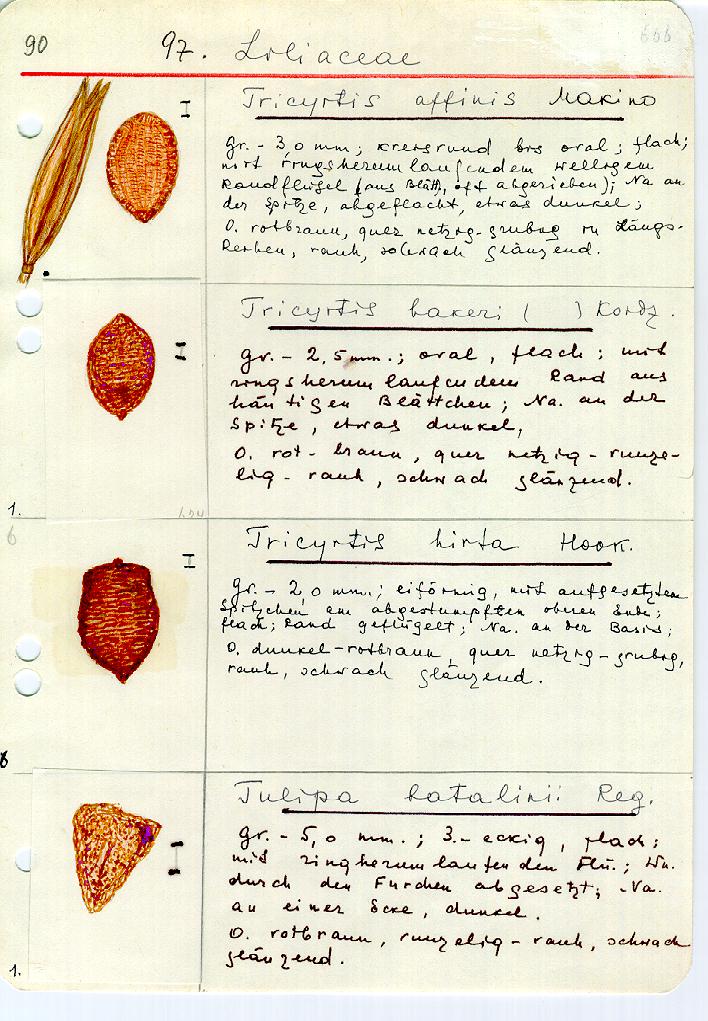 90 97. Liliaceae 666
Tricyrtis affinis Makino
gr. - 3,0 mm; kreisrund bis oval; flach;
mit ringsherumlaufendem welligem
Randflügel (aus Blätt, oft abgerieben); Na. an
der Spitze, abgeflacht, etwas dunkel;
O. rotbraun, quer netzig-grubig in Längs-
Reihen, rauh, schwach glänzend.
Tricyrtis bakeri ( ) Kordz.
gr. - 2,5 mm.; oval, flach; mit
ringsherumlaufendem Rand aus
häutigen Blättchen; Na. an der
Spitze, etwas dunkel,
O. rot-braun, quer netzig-runze-
lig-rauh, schwach glänzend.
1.
6
Tricyrtis hirta Hook.
gr. - 2,0 mm.; eiförmig, mit aufgesetztem
Spitzchen am abgestumpften oberen Ende;
flach; Rand geflügelt; Na. an der Basis;
O. dunkel-rotbraun, quer netzig-grubig,
rauh, schwach glänzend.
Tulipa batalinii Reg.
gr. - 5,0 mm.; 3-eckig, flach;
mit ringherumlaufenden Flü.;
durch den Furchen abgesetzt; Na.
an einer Ecke, dunkel.
O. rotbraun, runzelig-rauh, schwach
glänzend.
1.